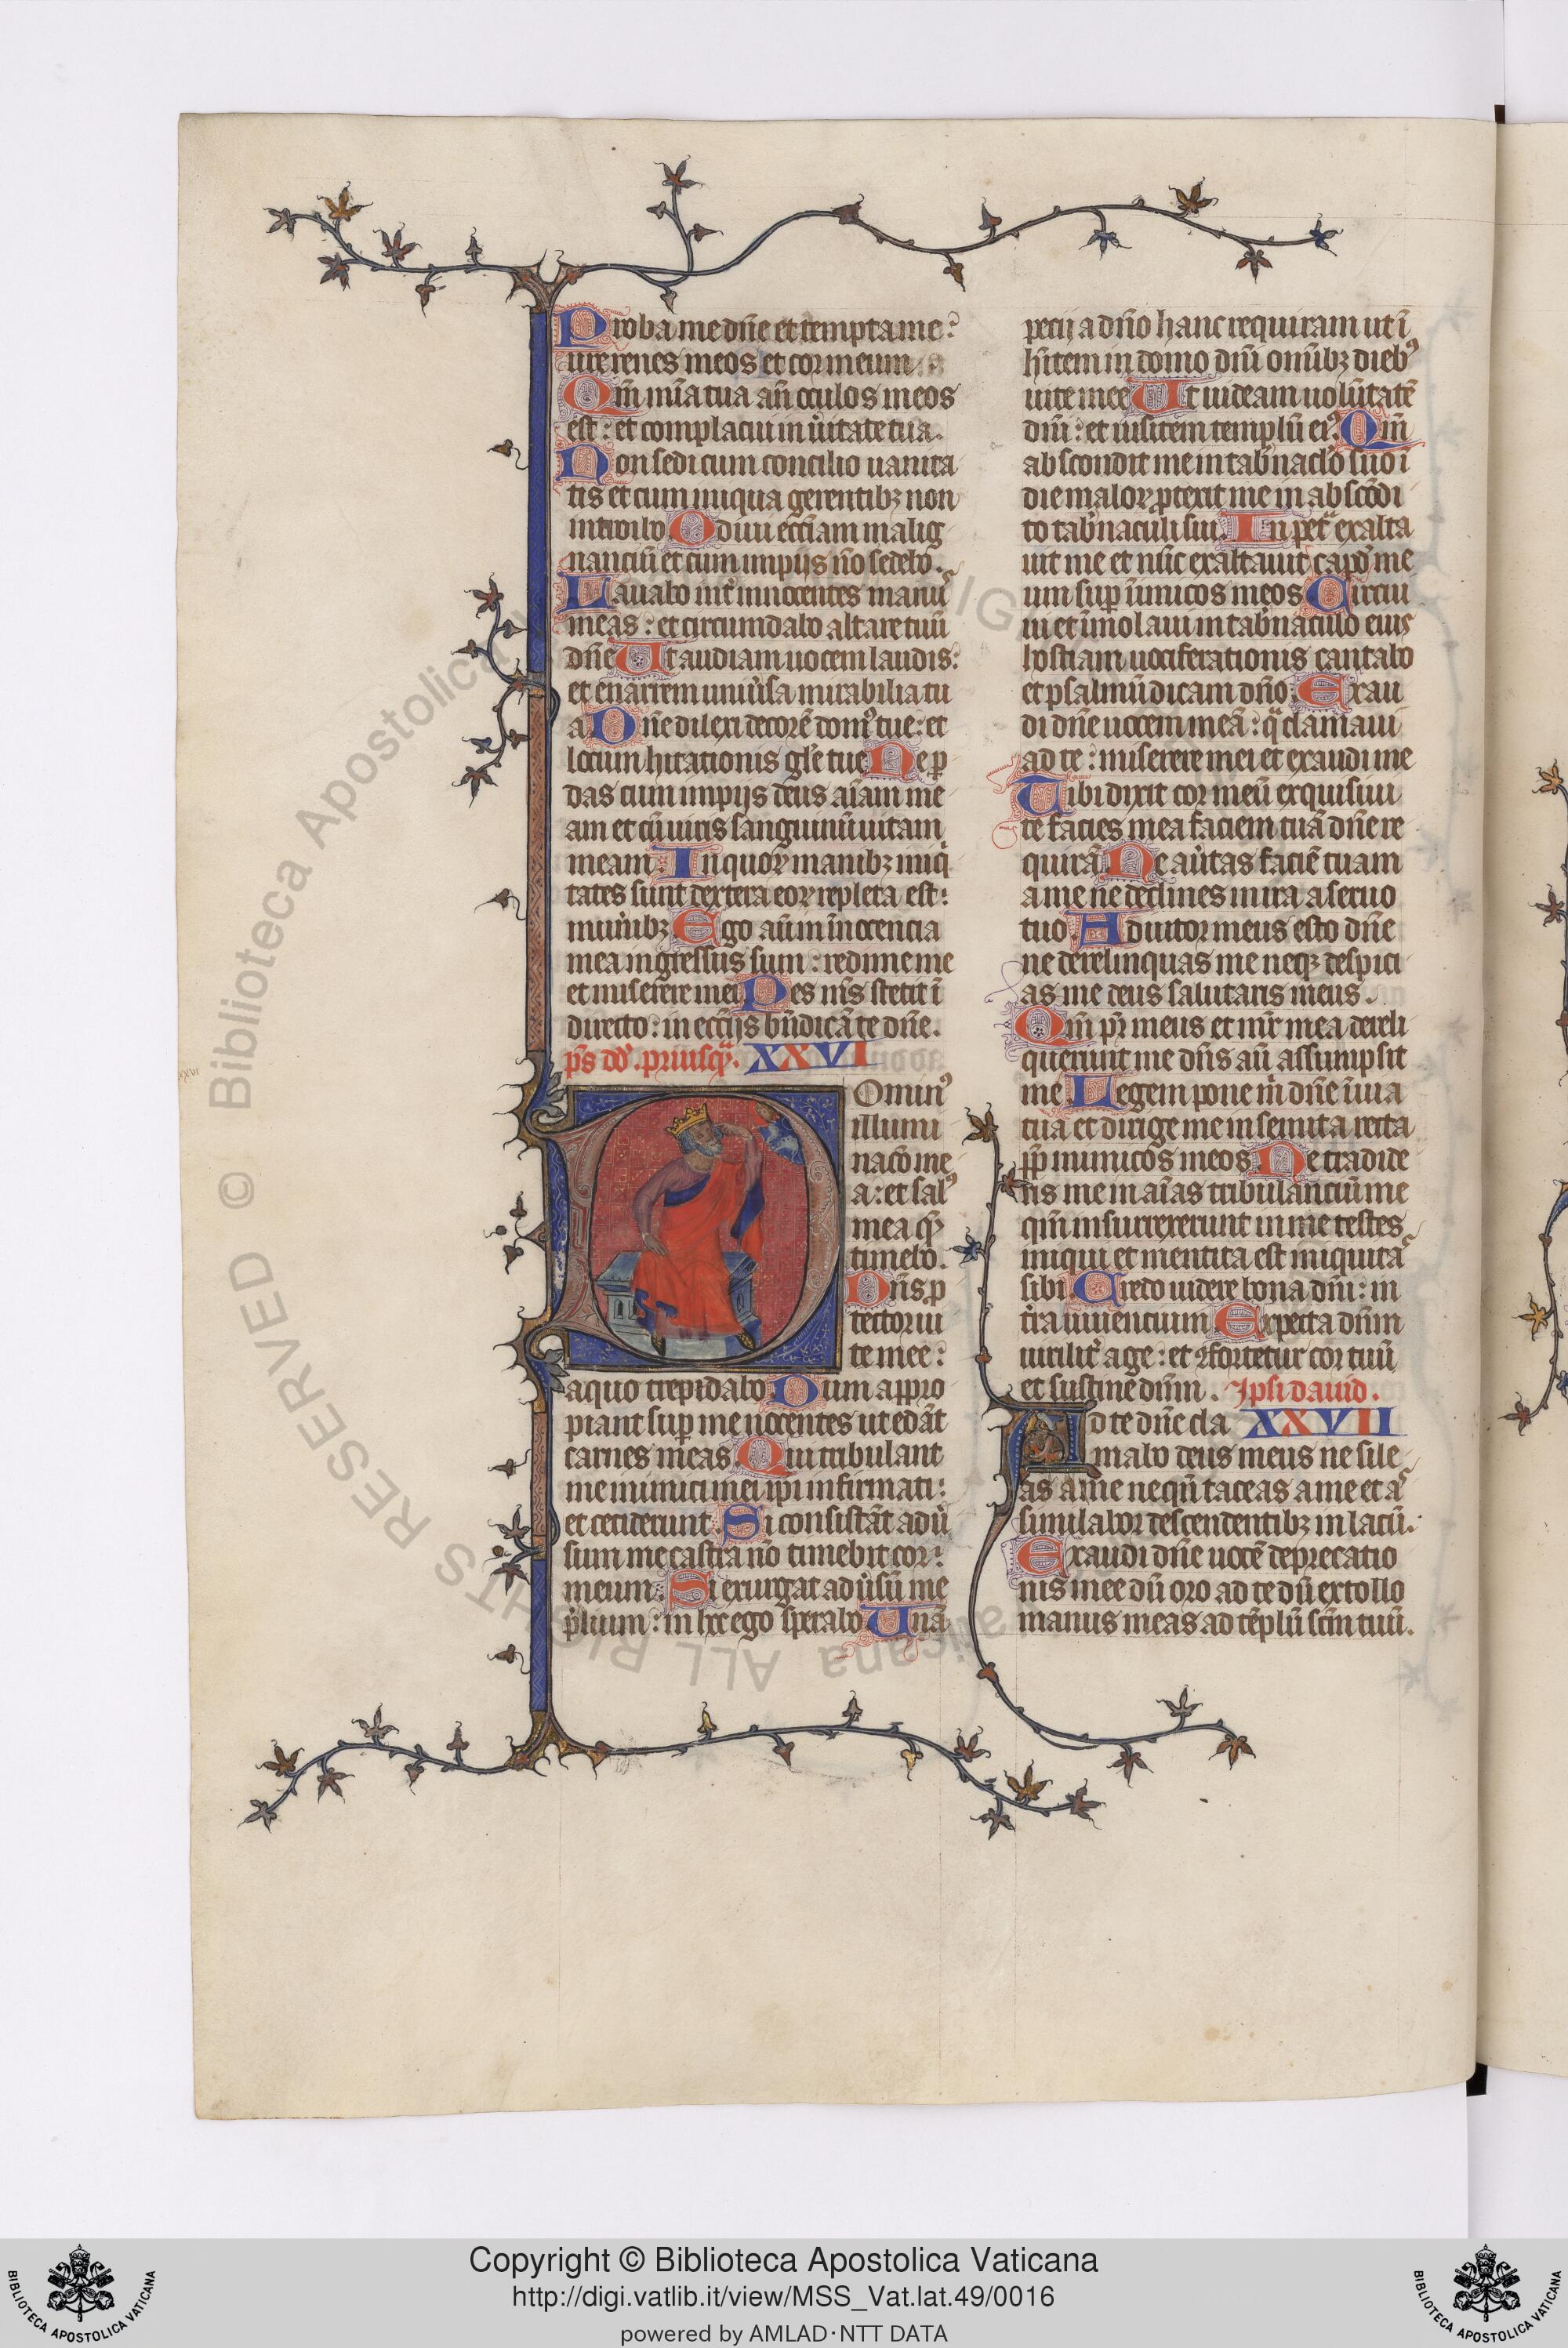 Proba me dñe et tempta me:
ure renes meos et cor meum
Qm̃ mĩa tua añ oculos meos
est: et complacui in ũitate tua.
Non sedi cum concilio uanita
tis et cum iniqua gerentibꝫ non
introibo Odiui eccĩam malig
nanciũ et cum impiis nõ sedebo.
Lauabo int̃ innocentes manꝰ
meas: et circumdabo altare tuũ
dñe Ut audiam uocem laudis:
et enarrem uniũsa mirabilia tu
a Dñe dilexi decorẽ domꝰ tue: et
locum hitationis gľe tue Ne ꝑ
das cum impijs deus aĩam me
am et cũ uiris sanguinũ uitam
meam. In quoꝝ manibꝫ iniq̃
tates sunt dextera eoꝝ repleta est:
munꝰibꝫ Ego aũ in ĩnocencia
mea ingressus sum: redime me
et miserere mei Pes mẽs stetit ĩ
directo: in eccĩjs bñdicã te dñe.
ps̃ dđ. priusq̃ꝫ. XXVI
Dominꝰ
illumi
nac̃o me
a: et salꝰ
mea quẽ
timebo.
Dñs ꝓ
tector ui
te mee:
a quo trepidabo Dum appro
piant suꝑ me nocentes ut edãt
carnes meas Qui tribulant
me inimici mei ipĩ infirmati:
et ceciderunt. Si consistãt adũ
sum me castra nõ timebit cor:
meum. Si exurgat adũsũ me
p̃lium: in hoc ego sperabo Unã
pecij a dño hanc requiram ut ĩ
hĩtem in domo dñi omĩbꝫ diebꝰ
uite mee Ut uideam uolũtatẽ
dñi: et uisitem templũ eiꝰ. Qm̃
abscondit me in tab̃nacl̃o suo ĩ
die maloꝝ ꝓtexit me in abscõdi
to tab̃naculi sui. In pet̃ exalta
uit me et nũc exaltauit capđ me
um suꝑ ĩimicos meos Circui
ui et ĩmolaui in tab̃naculo eius
hostiam uociferationis cantabo
et psalmũ dicam dño. Exau
di dñe uocem meã: q̃ clamaui
ad te: miserere mei et exaudi me
Tibi dixit cor meũ exquisiui
te facies mea faciem tuã dñe re
quirã Ne aũtas faciẽ tuam
a me ne declines in ira a seruo
tuo. Adiutor meus esto dñe
ne derelinquas me neqꝫ despici
as me deus salutaris meus.
Qm̃ pr̃ meus et mr̃ mea dereli
querunt me dñs aũ assumpsit
me Legem pone m̃ dñe ĩ uia
tua et dirige me in semita recta
ꝓp̃ inimicos meos Ne tradide
ris me in aĩas tribulanciũ me
qm̃ insurrexerunt in me testes
iniqui et mentita est iniquitãs
sibi. Credo uidere bona dñi: in
t̃ra uiuencium Expecta dñm
uirilit̃ age: et ꝯfortetur cor tuũ
et sustine dñm. Ipsi dauid.
Ad te dñe cla XXVII
mabo deus meus ne sile
as a me neqñ taceas a me et aꝰ
similabor descendentibꝫ in lacũ.
Exaudi dñe uocẽ deprecatio
nis mee dũ oro ad te dũ extollo
manus meas ad tẽplũ sc̃m tuũ.
xxvi
© Biblioteca Apostolica Vaticana ALL RIGHTS RESERVED
Copyright © Biblioteca Apostolica Vaticana
http://digi.vatlib.it/view/MSS_Vat.lat.49/0016
powered by AMLAD·NTT DATA
BIBLIOTECA APOSTOLICA VATICANA
BIBLIOTECA APOSTOLICA VATICANA